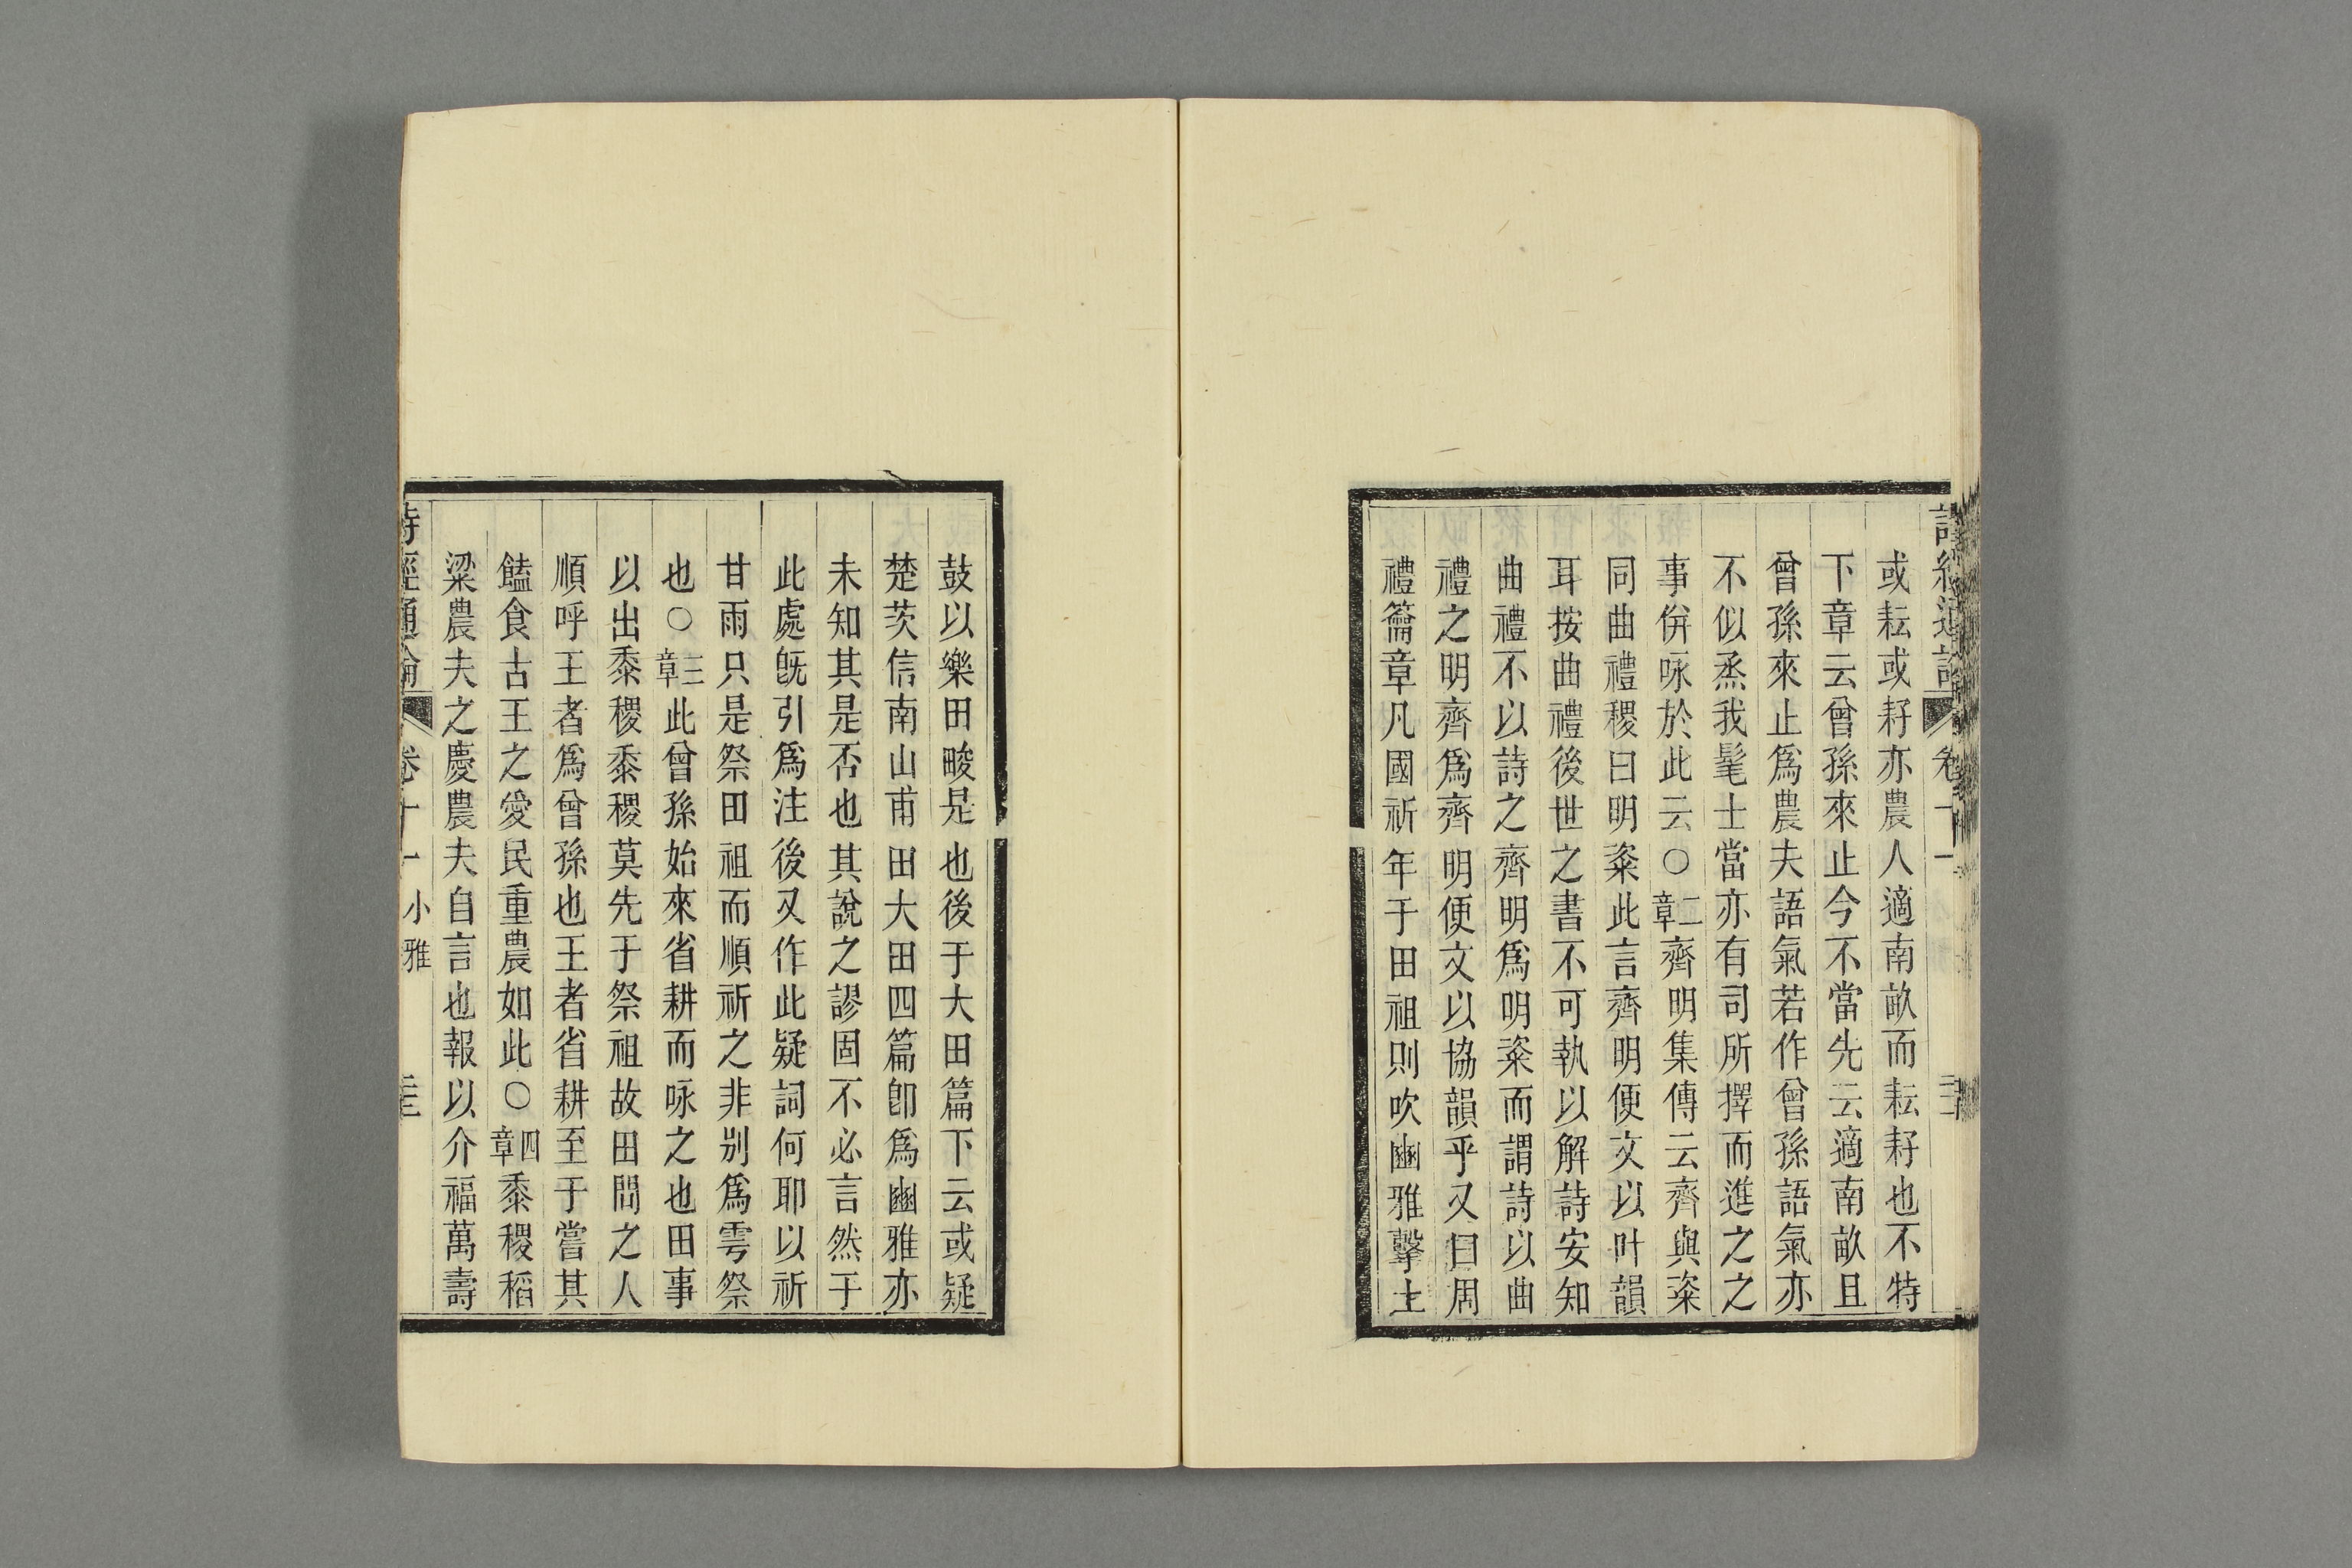 或耘或耔亦農人適南畝而耘耔也不特
下章云曾孫來止今不當先云適南畝且
曾孫來止爲農夫語氣若作曾孫語氣亦
不似烝我髦士當亦有司所擇而進之之
事倂咏於此云〇二章齊明集傳云齊與粢
同曲禮稷曰明粢此言齊明便文以叶韻
耳按曲禮後世之書不可執以解詩安知
曲禮不以詩之齊明爲明粢而謂詩以曲
禮之明齊爲齊明便文以協韻乎又曰周
禮籥章凡國祈年于田祖則吹豳雅擊土
鼓以樂田畯是也後于大田篇下云或疑
楚茨信南山甫田大田四篇卽爲豳雅亦
未知其是否也其說之謬固不必言然于
此處旣引爲注後又作此疑詞何耶以祈
甘雨只是祭田祖而順祈之非別爲雩祭
也〇三章此曾孫始來省耕而咏之也田事
以出黍稷黍稷莫先于祭祖故田間之人
順呼王者爲曾孫也王者省耕至于嘗其
饁食古王之愛民重農如此〇四章黍稷稻
粱農夫之慶農夫自言也報以介福萬壽
詩經通論 卷十一 小雅